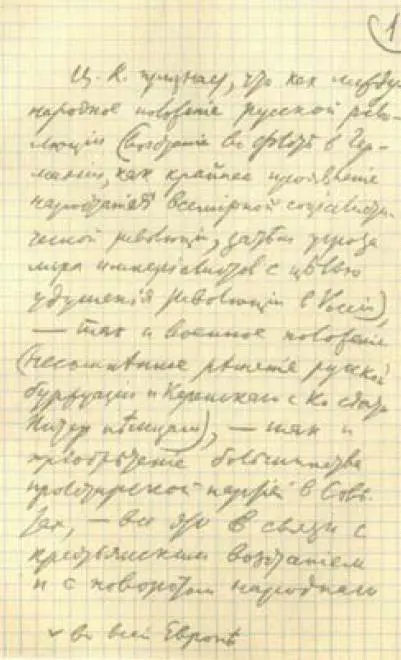 1
Ц. К. признает, что как между-
народное положение русской рево-
люции (восстание во флоте в Гер-
мании, как крайнее проявление
нарастания всемирной социалисти-
ческой революции, затем угроза
мира империалистов с целью
удушения революции в России),
— так и военное положение
(несомненное решение русской
буржуазии и Керенского с Ко сдать
Питер немцам), — так и
приобретение большинства
пролетарской партией в Сове-
тах, — все это в связи с
крестьянским восстанием
и с поворотом народного
во всей Европе